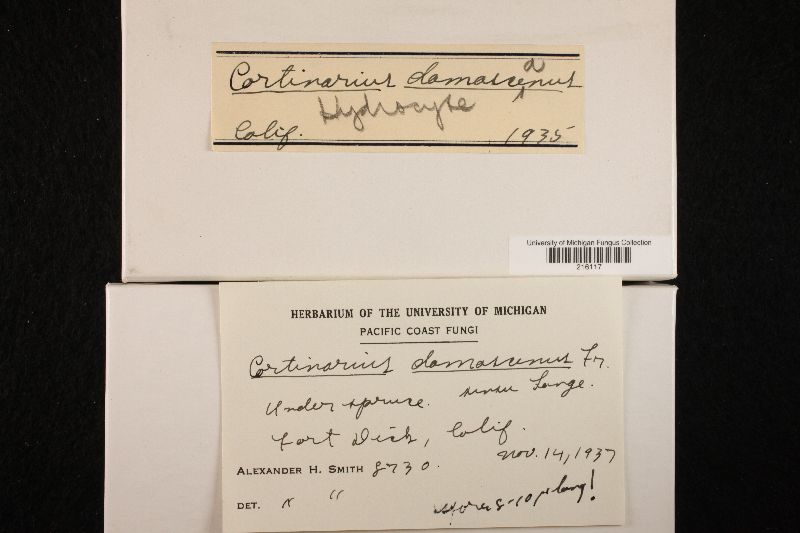 a
Cortinarius damascenus
Hydrocybe
Calif. 1935
University of Michigan Fungus Collection
216117
HERBARIUM OF THE UNIVERSITY OF MICHIGAN
PACIFIC COAST FUNGI
Cortinarius damascenus Fr.
sensu Lange.
Under spruce.
Fort Dick, Calif.
Nov. 14, 1937
ALEXANDER H. SMITH 8730.
DET. " "
spores 8-10 μ long!